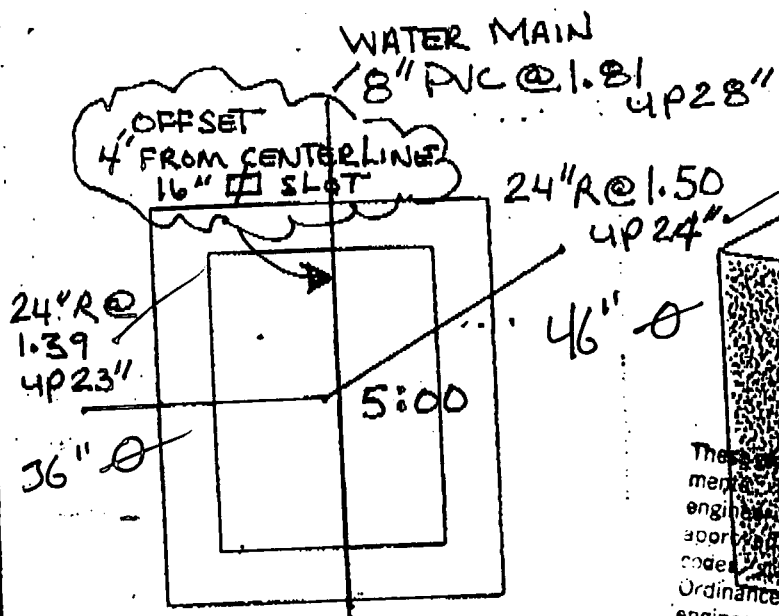 WATER MAIN
8" PVC @ 1.81
up 28"
OFFSET
4" FROM CENTERLINE
16" SLOT
24"R @ 1.50
up 24"
24"R @
1.39
up 23"
46" Ø
5:00
36" Ø
engin
codes
Ordinance
engine